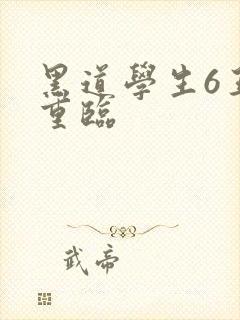 黑道學生6王
重臨
武帝